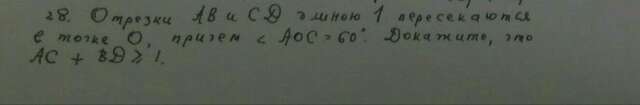 28. Отрезки AB и CD длиною 1 пересекаются
в точке O, причем < AOC = 60°. Докажите, что
AC + BD ≥ 1.